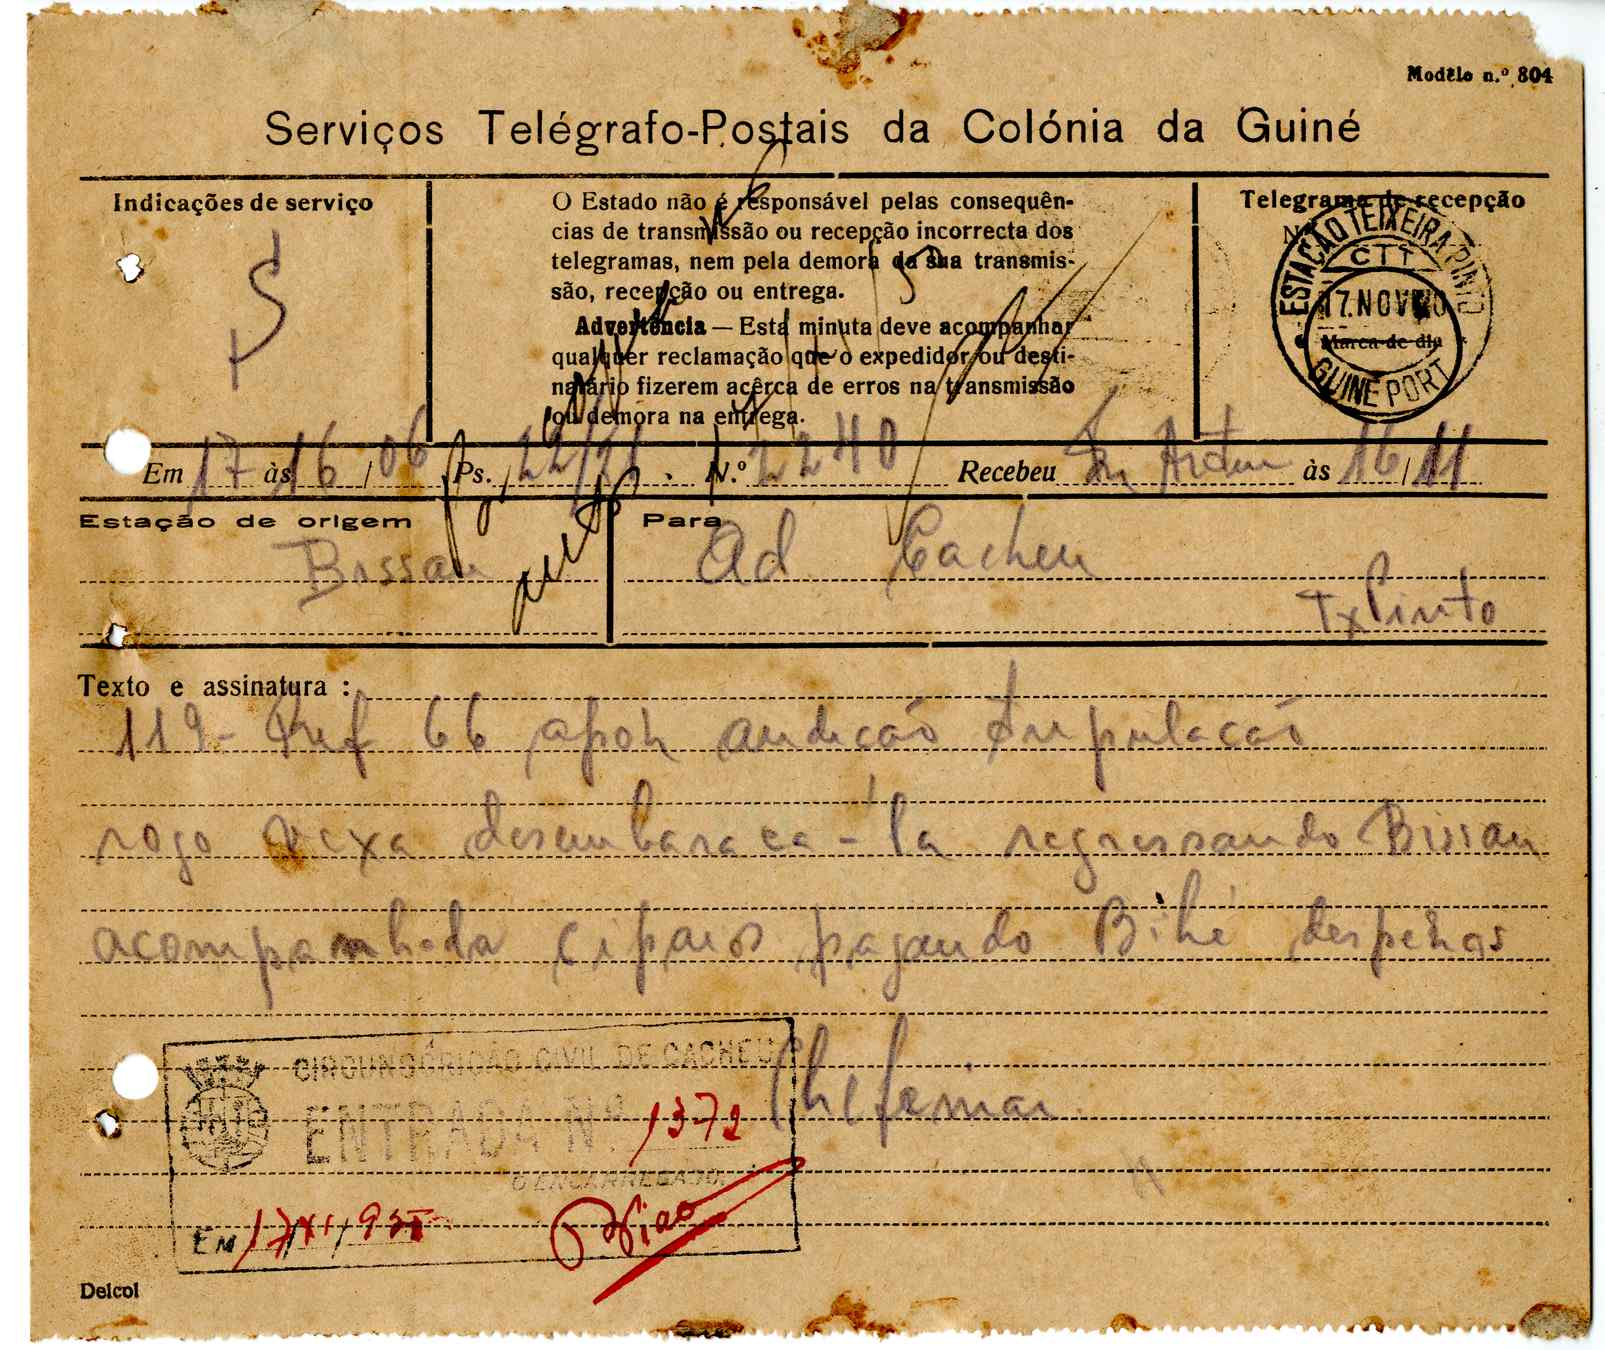 Modêlo n.º 804
Serviços Telégrafo-Postais da Colónia da Guiné
Indicações de serviço
S
O Estado não é responsável pelas consequên-
cias de transmissão ou recepção incorrecta dos
telegramas, nem pela demora da sua transmis-
são, recepção ou entrega.
Advertência — Esta minuta deve acompanhar
qualquer reclamação que o expedidor ou desti-
natário fizerem acêrca de erros na transmissão
ou demora na entrega.
Telegrama de recepção
ESTAÇÃO TEIXEIRA PINTO
CTT
17.NOV
Marca de dia
GUINÉ PORT
Em 17 às 16/06 Ps. 22/21 N.º 2240 Recebeu às 16/11
Estação de origem
Bissau
Para
Ad Cacheu
Tx Pinto
Texto e assinatura :
119- Ref 66 apoz audição tripulação
rogo vexa desembaraca-la regressando Bissau
acompanhada cipaios pagando Bihé despezas
Chefe
CIRCUNSCRIÇÃO CIVIL DE CACHEU
ENTRADA Nº 1372
O ENCARREGADO,
EM 17/XI/95
Delcol